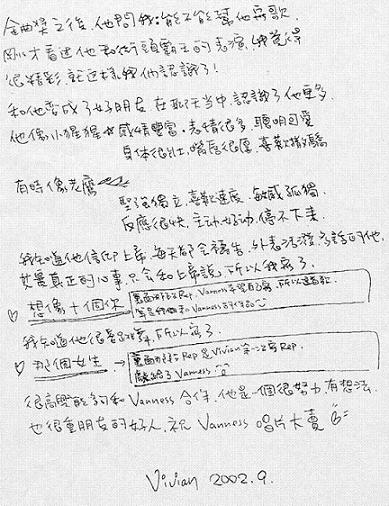 金曲獎之後,他問我:能不能幫他寫歌.
剛才看過他和街頭霸王的表演,我覺得
很精彩.就這樣我們認識了!
和他變成了好朋友.在聊天當中.認識了他更多.
他像小猩猩 感情豐富.表情很多.聰明可愛
身体很壯,嘴唇很厚.喜歡撒嬌
有時像老鷹
堅強獨立,喜歡速度.敏感孤獨.
反應很快,主動好動,停不下來.
我知道他信仰上帝.每天都會禱告,外表活潑
真正的心事.只會和上帝說,所以我寫了.
想像+個你
裏面 Rap, Vanness
我知道他很喜歡 所以寫了.
那個女生 →
裏面 Rap 是 Vivian 第一次寫 Rap.
獻給了 Vanness
很高興能夠和 Vanness 合作,他是一個很努力,有想法.
也很重朋友的好人.祝 Vanness 唱片大賣
Vivian 2002.9.